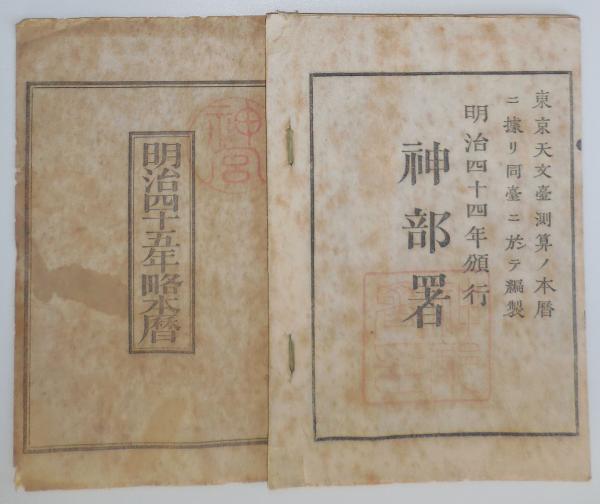 東京天文臺測算ノ本暦
ニ據リ同臺ニ於テ編製
明治四十四年頒行
神部署
神宮
明治四十五年略本暦